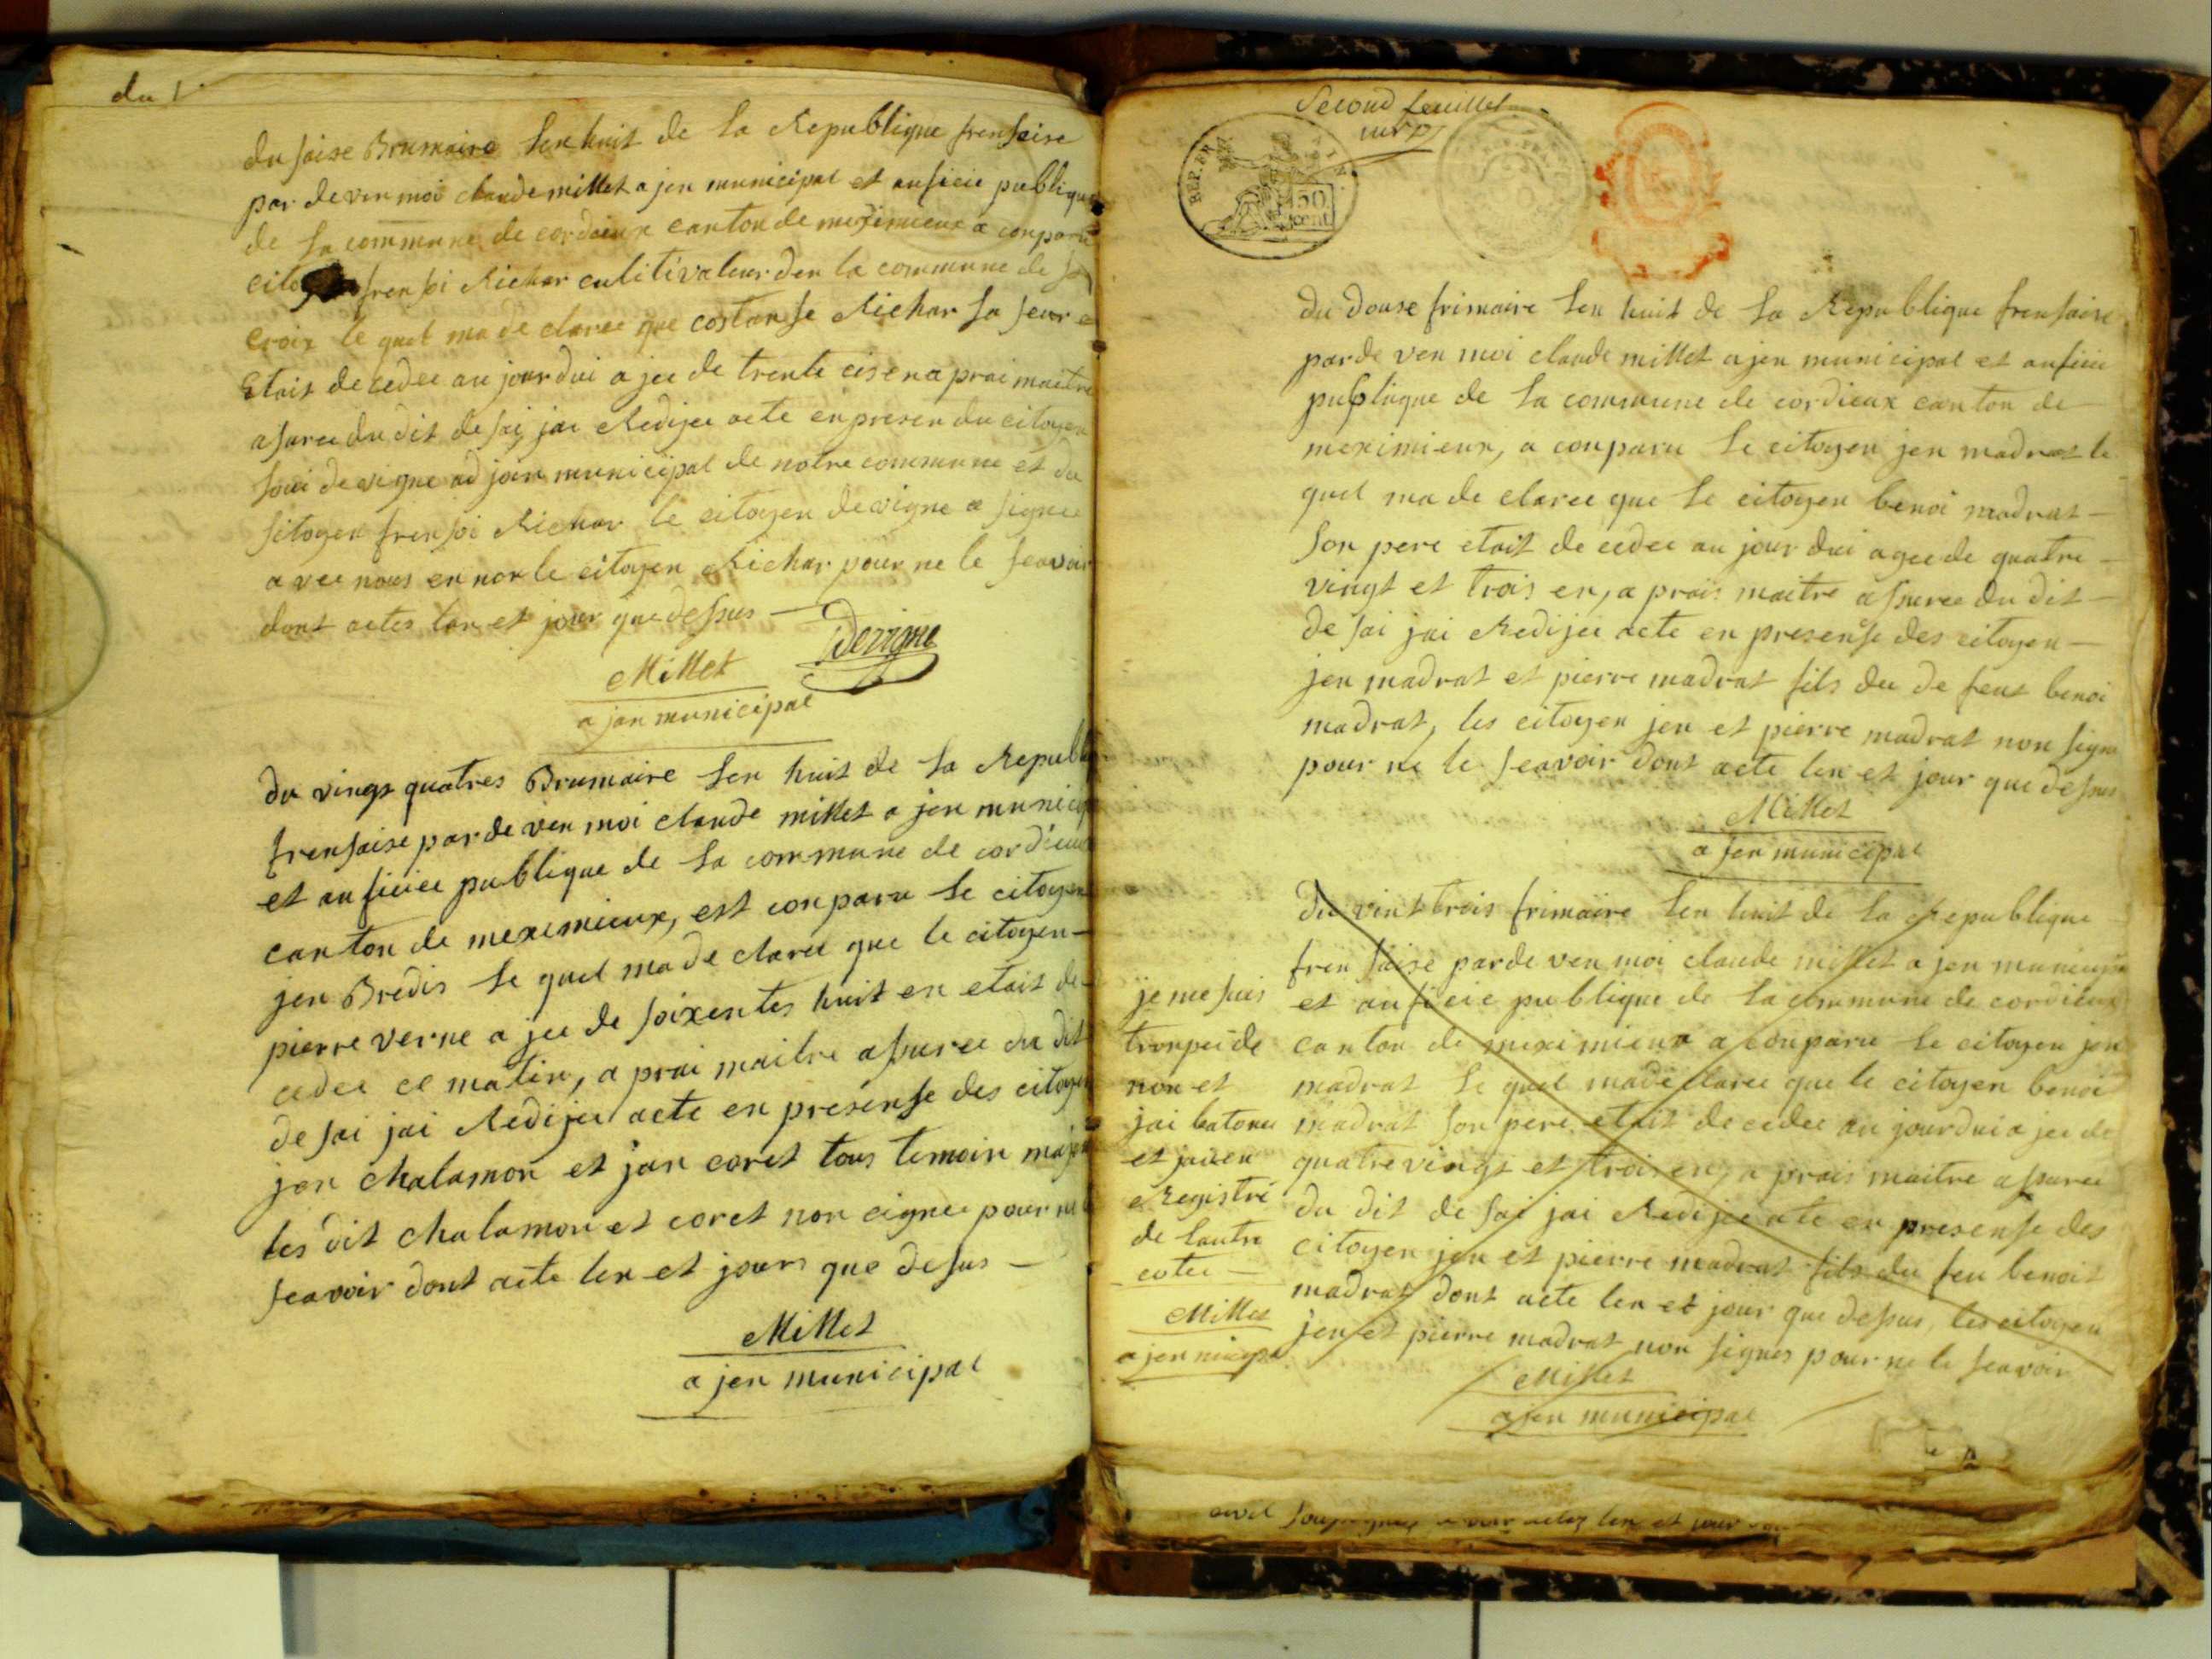 du
du saise Brumaire len huit de la Republique frensaise
par deven moi claude millet a jen municipal et aufisie publique
de la commune de cordieux canton de meximieux a conparu
frensoi Richar culitivateur den la commune de
croix le quel ma de claree que costanse Richar sa seur
Etait de cedee au jourdui a jee de trente cis en a prai maitre
asuree du dit de sai jai Redijee acte en presen du citoyen
loui devigne ad join municipal de notre commune et du
sitoyen frensoi Richar le citoyen devigne a signee
a vec nous en non le citoyen Richar pour ne le seavoir
dont actes lan et jour que dessus
Devigne
Millet
a jen municipal
du vingt quatres Brumaire len huit de la Republi
frensaise par de ven moi claude millet a jen municip
et aufisiee publique de la commune de cordieux
canton de meximieux, est conparu le citoyen
jen Bredis le quel ma de claree que le citoyen
pierre verne a jee de soixentes huit en etait de
cedee ce matin, a prai maitre assuree du dit
de sai jai Redijee acte en presense des citoyen
jen chalamon et jan coret tous temoin majeu
les dit chalamon et coret non cignee pour ne
seavoir dont acte len et jours que desus
Millet
a jen municipal
Second feuillet
REP. FRA
50
cent
du douse frimaire len huit de la Republique frensaise
par de ven moi claude millet a jen municipal et aufisie
puplique de la commune de cordieux canton de
meximieux, a conparu le citoyen jen madrat le
quel ma de claree que le citoyen benoi madrat
son pere etait de cedee au jour dui agee de quatre
vingt et trois en, a prais maitre assuree du dit
de sai jai Redijee acte en presense des citoyen
jen madrat et pierre madrat fils du de feut benoi
madrat, les citoyen jen et pierre madrat non signe
pour ne le seavoir dont acte len et jour que dessus
Millet
a jen municipal
du vint trois frimaire len huit de la Republique
fren saise par de ven moi claude millet a jen municipa
et aufisie publique de la commune de cordieux
canton de meximieux a conparu le citoyen jen
madrat le quel ma de claree que le citoyen benoi
madrat son pere etait de cedee au jourdui a jee de
quatre vingt et trois en, a prais maitre assuree
du dit de sai jai Redijee acte en presense des
citoyen jen et pierre madrat fils du feu benoit
madrat dont acte len et jour que dessus, les citoyen
jen et pierre madrat non signes pour ne le seavoir
Millet
a jen municipal
je me suis
trompei de
non et
jai batonee
et jai en
Registri
de lautre
cotee
Millet
a jen
len et jour